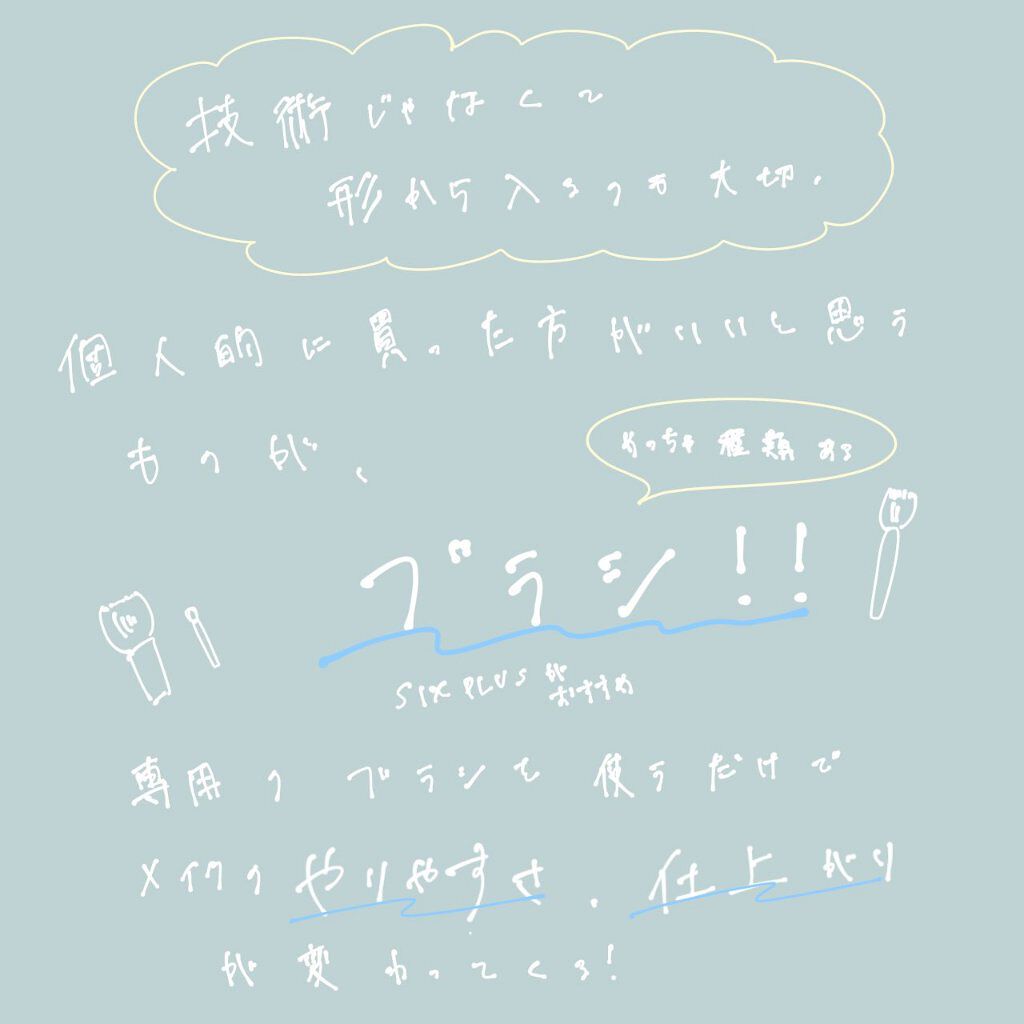 技術じゃなくて
形から入るのも大切.
個人的に買った方がいいと思う
ものが、
めっちゃ種類ある
ブラシ!!
SIXPLUSが
おすすめ
専用のブラシを使うだけで
メイクのやりやすさ.仕上がり
が変わってくる!